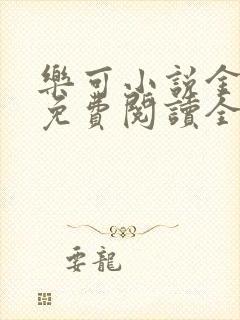 樂可小説全
免費閱讀全
要龍